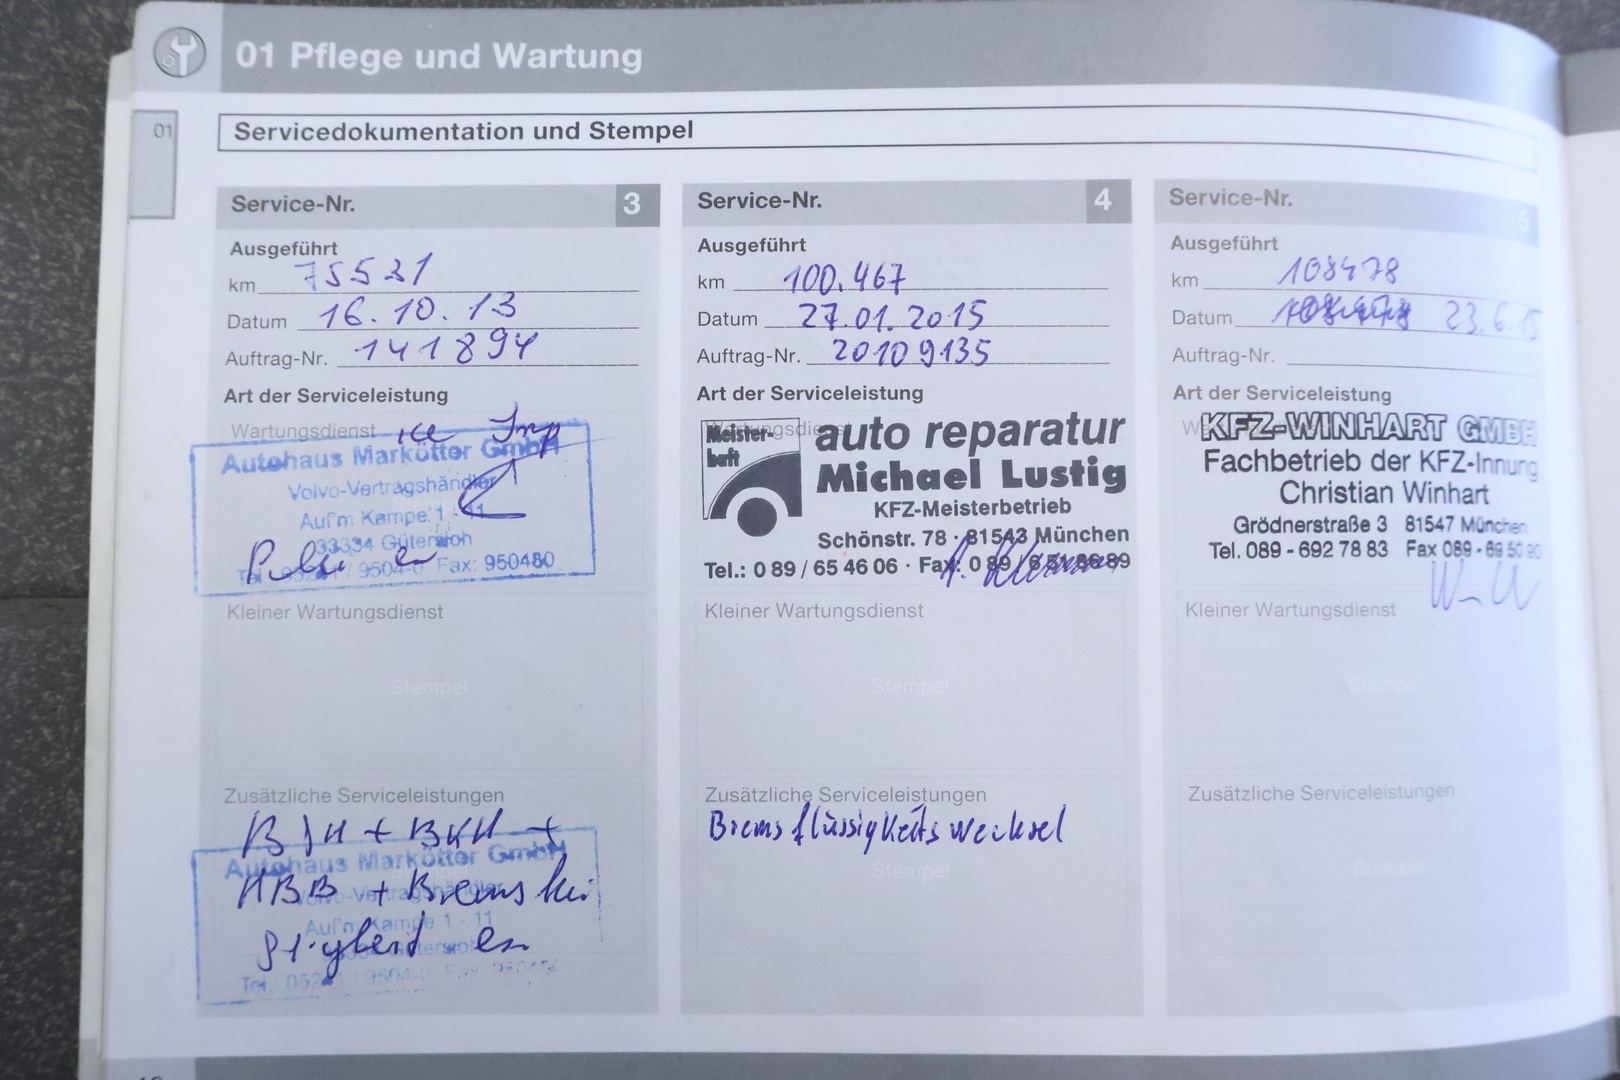 01 Pflege und Wartung
01
Servicedokumentation und Stempel
Service-Nr. 3
Ausgeführt
km 75521
Datum 16.10.13
Auftrag-Nr. 141894
Art der Serviceleistung
Wartungsdienst
Autohaus Markötter GmbH
Volvo-Vertragshändler
Auf'm Kampe 1 - 11
33334 Gütersloh
Fax: 950480
Kleiner Wartungsdienst
Stempel
Zusätzliche Serviceleistungen
Autohaus Markötter GmbH
Volvo-Vertragshändler
Auf'm Kampe 1 - 11
Service-Nr. 4
Ausgeführt
km 100.467
Datum 27.01.2015
Auftrag-Nr. 20109135
Art der Serviceleistung
Wartungsdienst
Meister-
haft
auto reparatur
Michael Lustig
KFZ-Meisterbetrieb
Schönstr. 78 · 81543 München
Tel.: 0 89 / 65 46 06 · Fax: 0 89 / 6 51 86 89
Kleiner Wartungsdienst
Stempel
Zusätzliche Serviceleistungen
Bremsflüssigkeitswechsel
Stempel
Service-Nr. 5
Ausgeführt
km 108478
Datum 23.6.15
Auftrag-Nr.
Art der Serviceleistung
KFZ-WINHART GMBH
Fachbetrieb der KFZ-Innung
Christian Winhart
Grödnerstraße 3 81547 München
Tel. 089 - 692 78 83 Fax 089 - 69 50 90
Kleiner Wartungsdienst
Stempel
Zusätzliche Serviceleistungen
Stempel